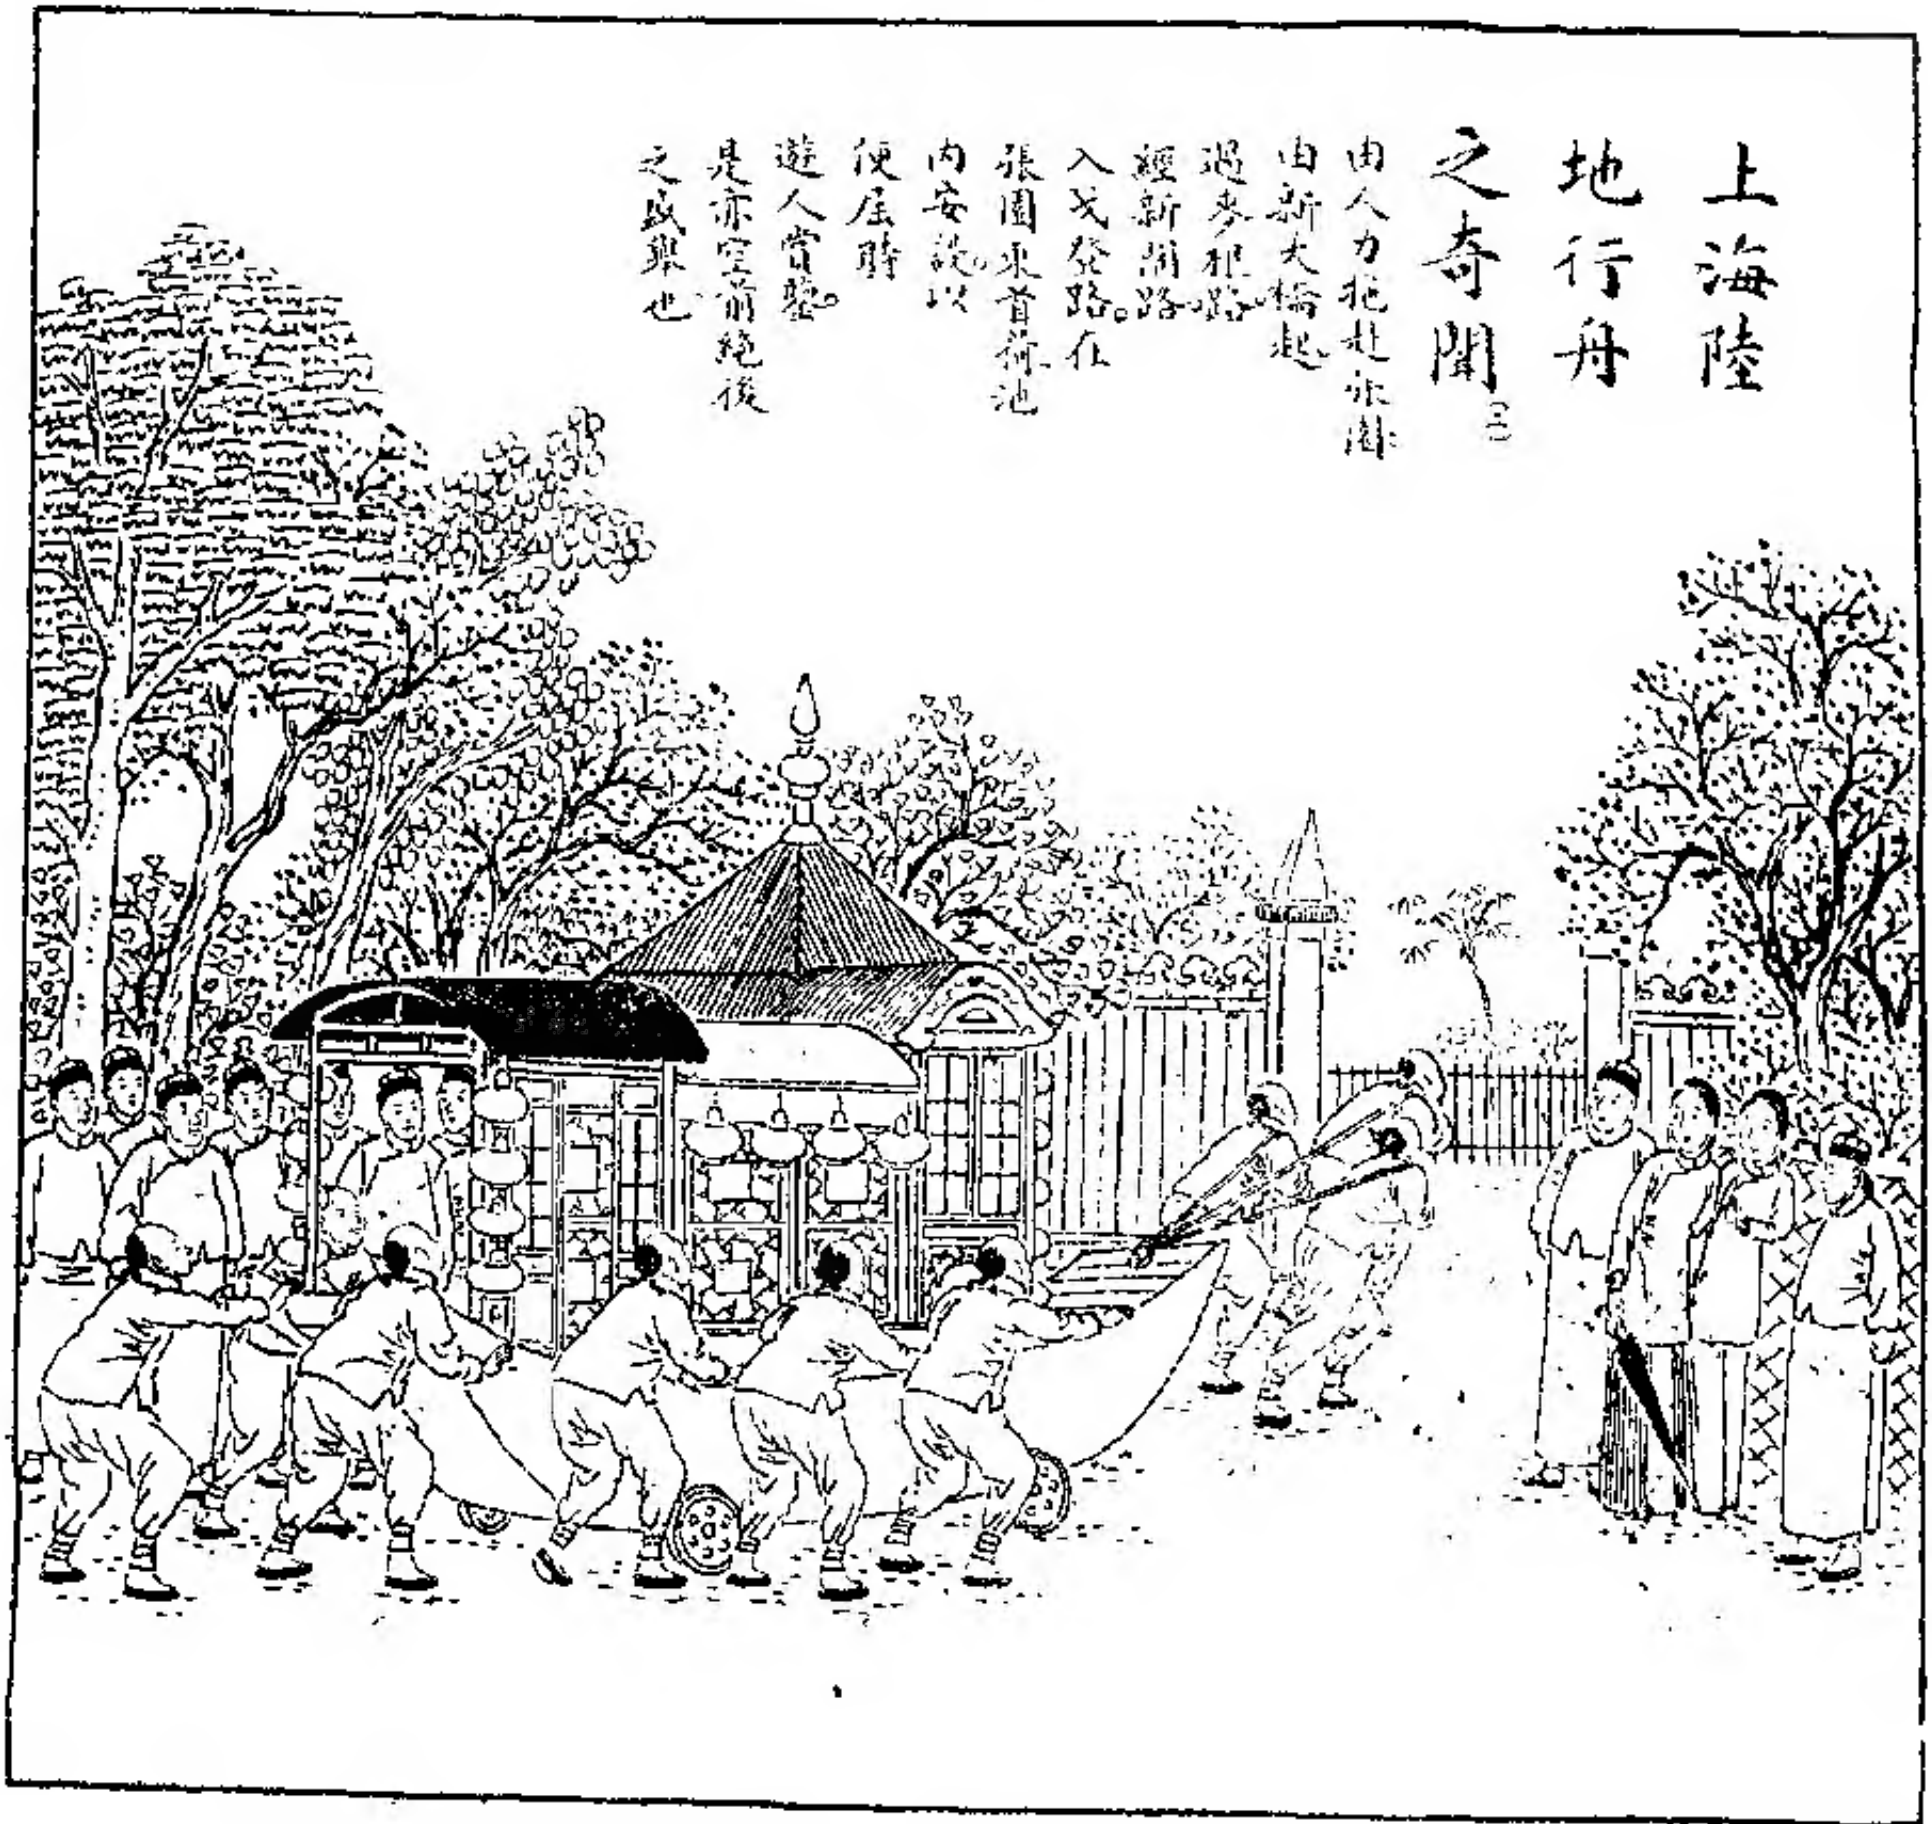 上海陸
地行舟
之奇聞
(二)
由人力拖赴張園
由新大橋起
過麥根路
經新閘路
入戈登路。在
張園東首荷池
內安設。以
便屆時
遊人賞鑒。
是亦空前絕後
之盛舉也